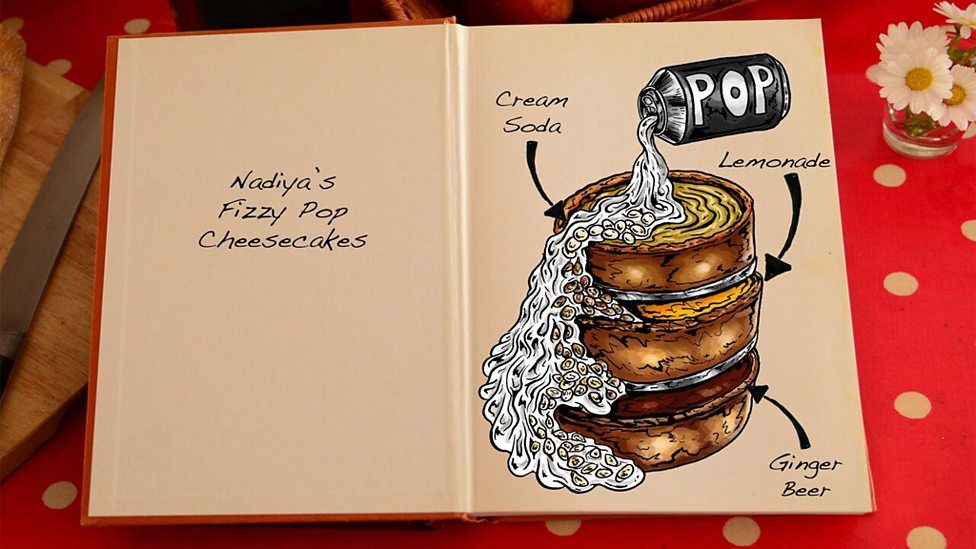 Nadiya's
Fizzy Pop
Cheesecakes
POP
Cream
Soda
Lemonade
Ginger
Beer